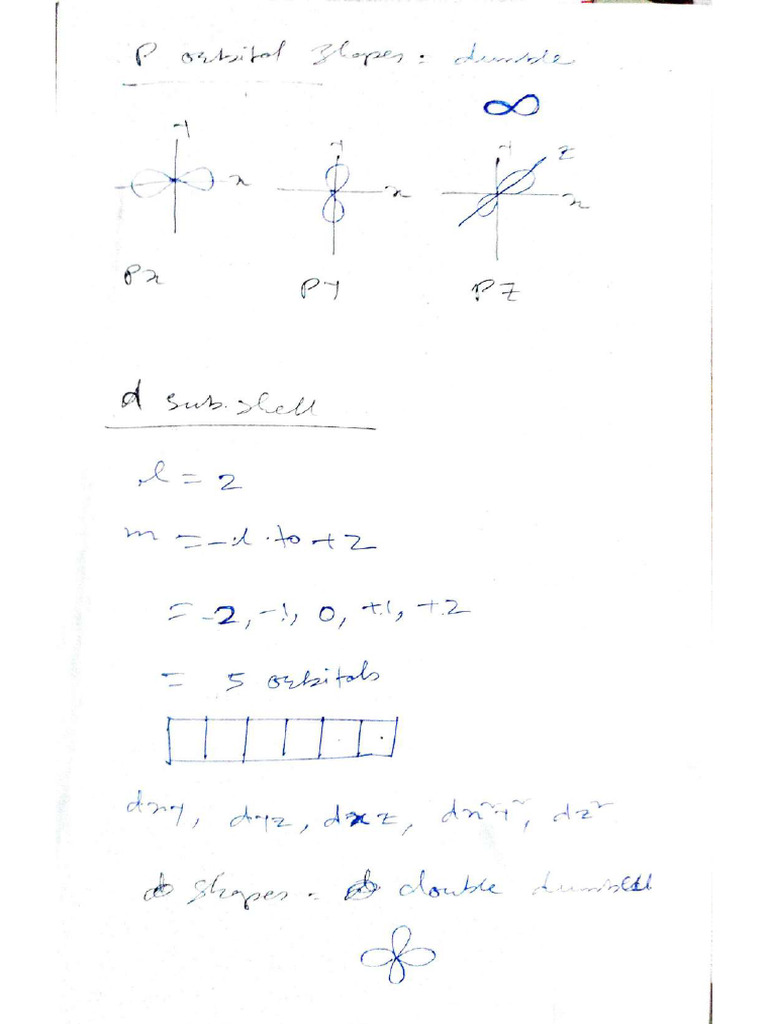 P orbital shapes: dumble
Y Y Y Z
x x x
Px PY PZ
d sub.shell
l = 2
m = -l to +2
= -2, -1, 0, +1, +2
= 5 orbitals
dxy, dyz, dxz, dx²y², dz²
d shapes = double dumbell